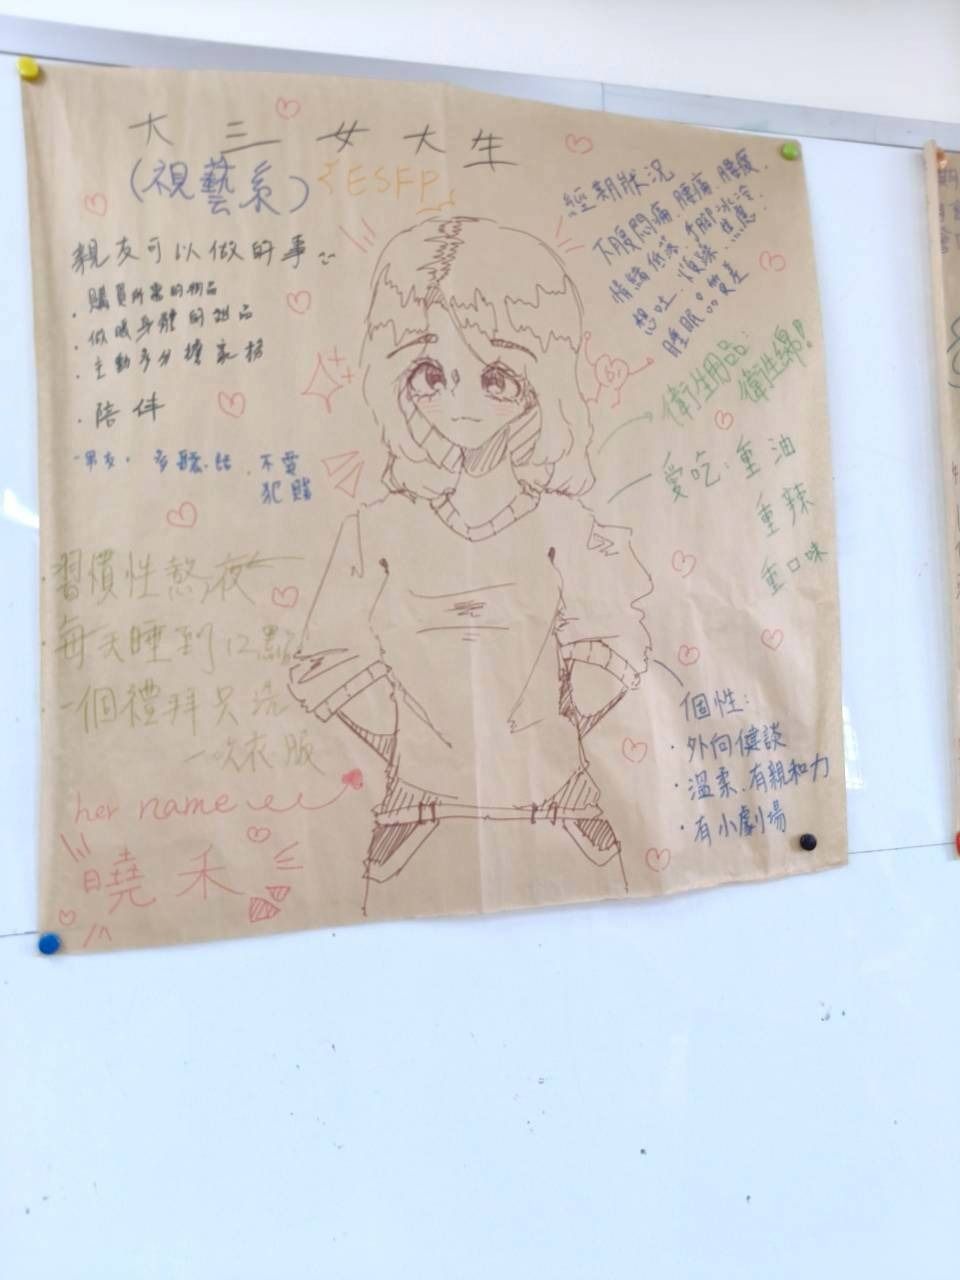 大三女大生
(視藝系) ESFP
經期狀況
下腹悶痛、腰痛、腰痠、
情緒低落、手腳冰冷、
想吐、煩躁、焦慮、
睡眠品質差
親友可以做的事:
·購買所需的物品
·做暖身體的甜品
·主動多分擔家務
·陪伴
-男友: 不要
犯賤
→衛生用品:
衛生綿!
愛吃:重油
重辣
重口味
·習慣性熬夜
·每天睡到12點
·一個禮拜只洗
一次衣服
個性:
·外向健談
·溫柔、有親和力
·有小劇場
her name
曉禾